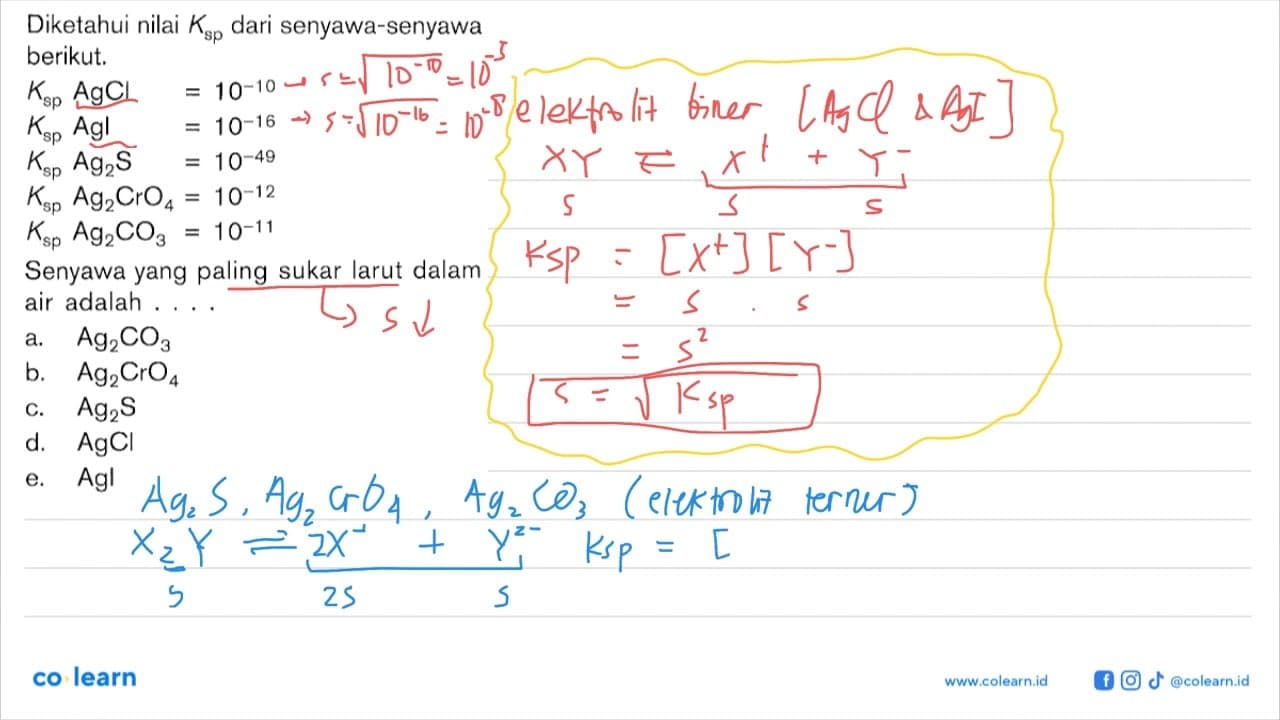 Diketahui nilai Ksp dari senyawa-senyawa
berikut.
Ksp AgCl = 10⁻¹⁰ → s = √10⁻¹⁰ = 10⁻⁵
Ksp AgI = 10⁻¹⁶ → s = √10⁻¹⁶ = 10⁻⁸
Ksp Ag₂S = 10⁻⁴⁹
Ksp Ag₂CrO₄ = 10⁻¹²
Ksp Ag₂CO₃ = 10⁻¹¹
Senyawa yang paling sukar larut dalam
air adalah . . . .
↳ s ↓
a. Ag₂CO₃
b. Ag₂CrO₄
c. Ag₂S
d. AgCl
e. AgI
elektrolit biner [AgCl & AgI]
XY ⇌ X⁺ + Y⁻
s s s
Ksp = [X⁺] [Y⁻]
= s . s
= s²
s = √Ksp
Ag₂S, Ag₂CrO₄, Ag₂CO₃ (elektrolit terner)
X₂Y ⇌ 2X⁺ + Y²⁻ Ksp = [
s 2s s
co learn
www.colearn.id
@colearn.id